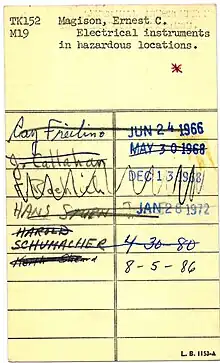 TK152 Magison, Ernest C.
M19 Electrical instruments
in hazardous locations.
*
Ray Friedino JUN 24 1966
J. Callahan MAY 30 1968
DEC 13 1968
HANS JAN 28 1972
HAROLD
SCHUMACHER 4-30-80
8-5-86
L. B. 1153-A